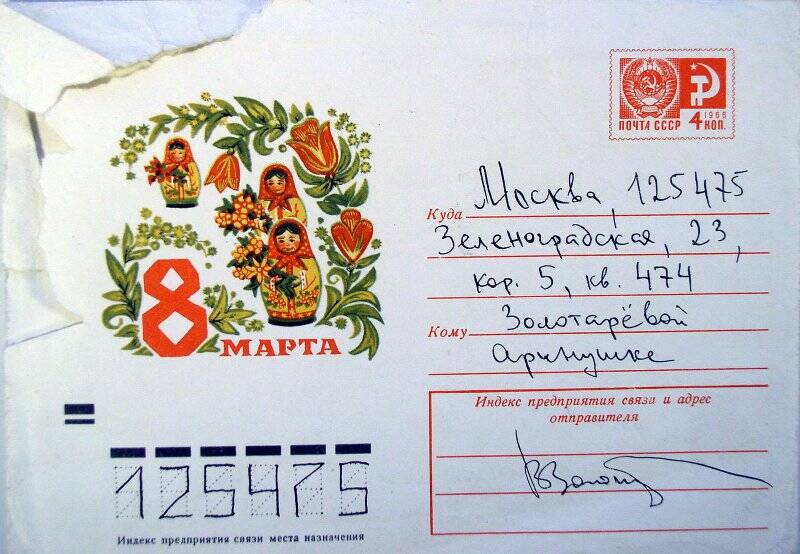 1966
ПОЧТА СССР 4 КОП.
8 МАРТА
Куда Москва, 125475
Зеленоградская, 23,
кор. 5, кв. 474
Кому Золотарёвой
Аринушке
Индекс предприятия связи и адрес
отправителя
125475
Индекс предприятия связи места назначения